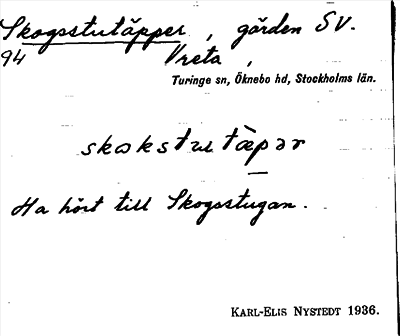 Skogsstutäpper, gården SV.
94 Vreta,
Turinge sn, Öknebo hd, Stockholms län.
skɷkstɯtæ̀pər
Ha hört till Skogsstugan.
KARL-ELIS NYSTEDT 1936.